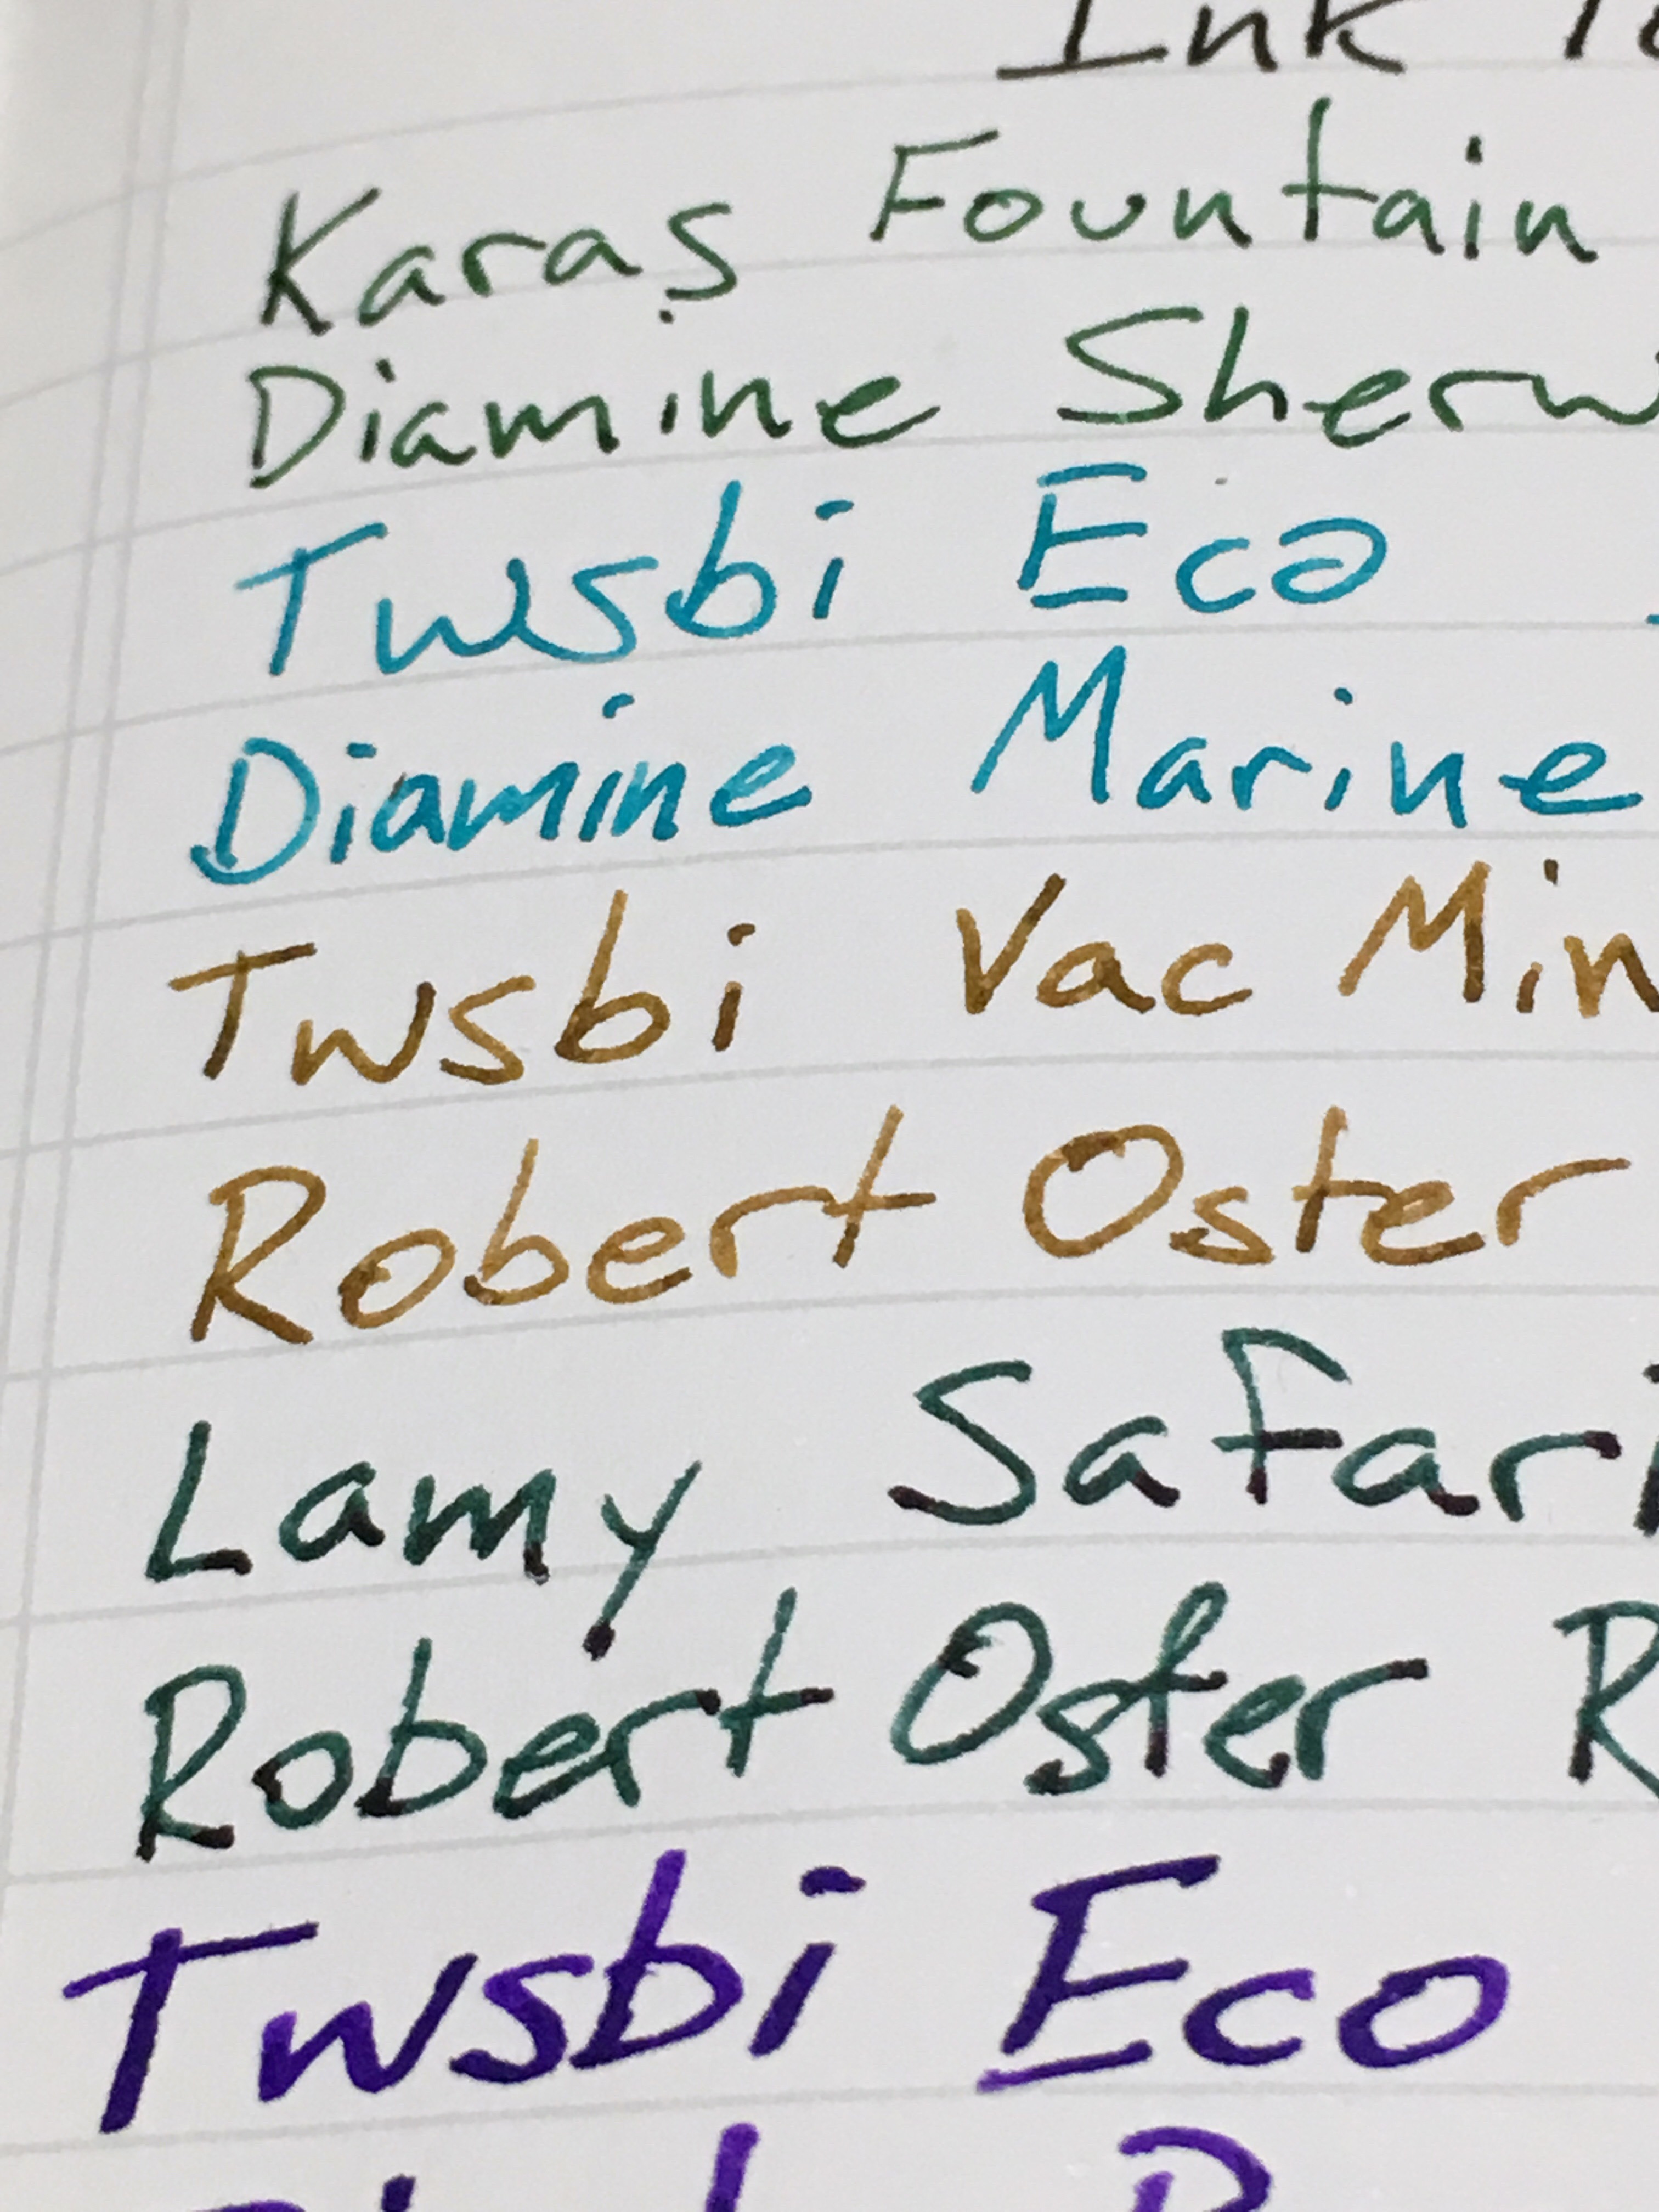 Ink
Karas Fountain
Diamine Sherw
Twsbi Eco
Diamine Marine
Twsbi Vac Min
Robert Oster
Lamy Safari
Robert Oster R
Twsbi Eco